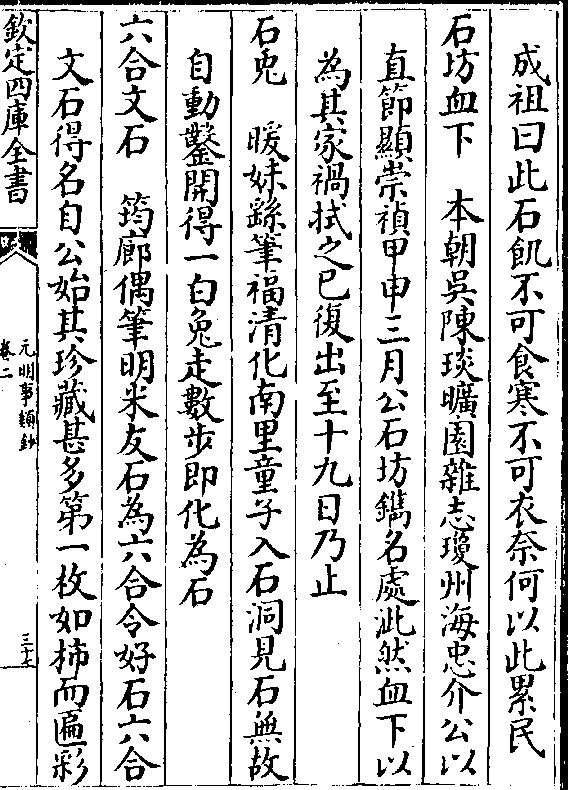 成祖曰此石飢不可食寒不可衣奈何以此累民
石坊血下　本朝吳陳琰曠園雜志瓊州海忠介公以
直節顯崇禎甲申三月公石坊鐫名處泚然血下以
為其家禍拭之已復出至十九日乃止
石兎　暖姝䌛筆福清化南里童子入石洞見石無故
自動鑿開得一白兔走數步即化為石
六合文石　筠廊偶筆明米友石為六合令好石六合
文石得名自公始其珍藏甚多第一枚如柿而匾彩
欽定四庫全書
元明事類鈔
卷二
三十七